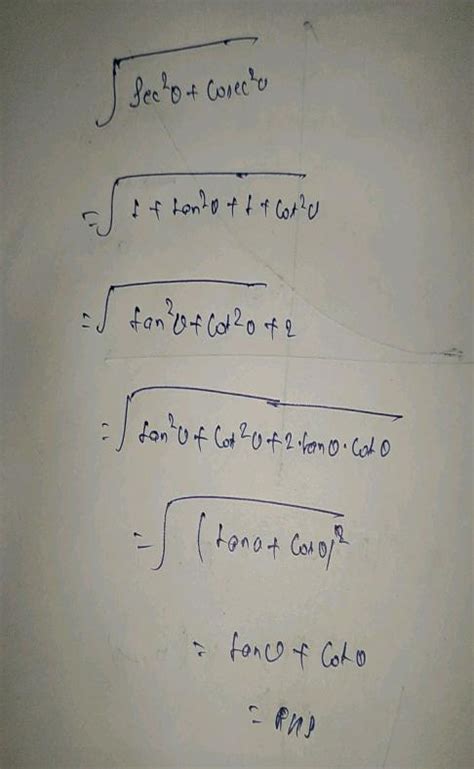 √sec²θ + cosec²θ
= √1 + tan²θ + 1 + cot²θ
= √tan²θ + cot²θ + 2
= √tan²θ + cot²θ + 2·tanθ·cotθ
= √(tanθ + cotθ)²
= tanθ + cotθ
= RHS